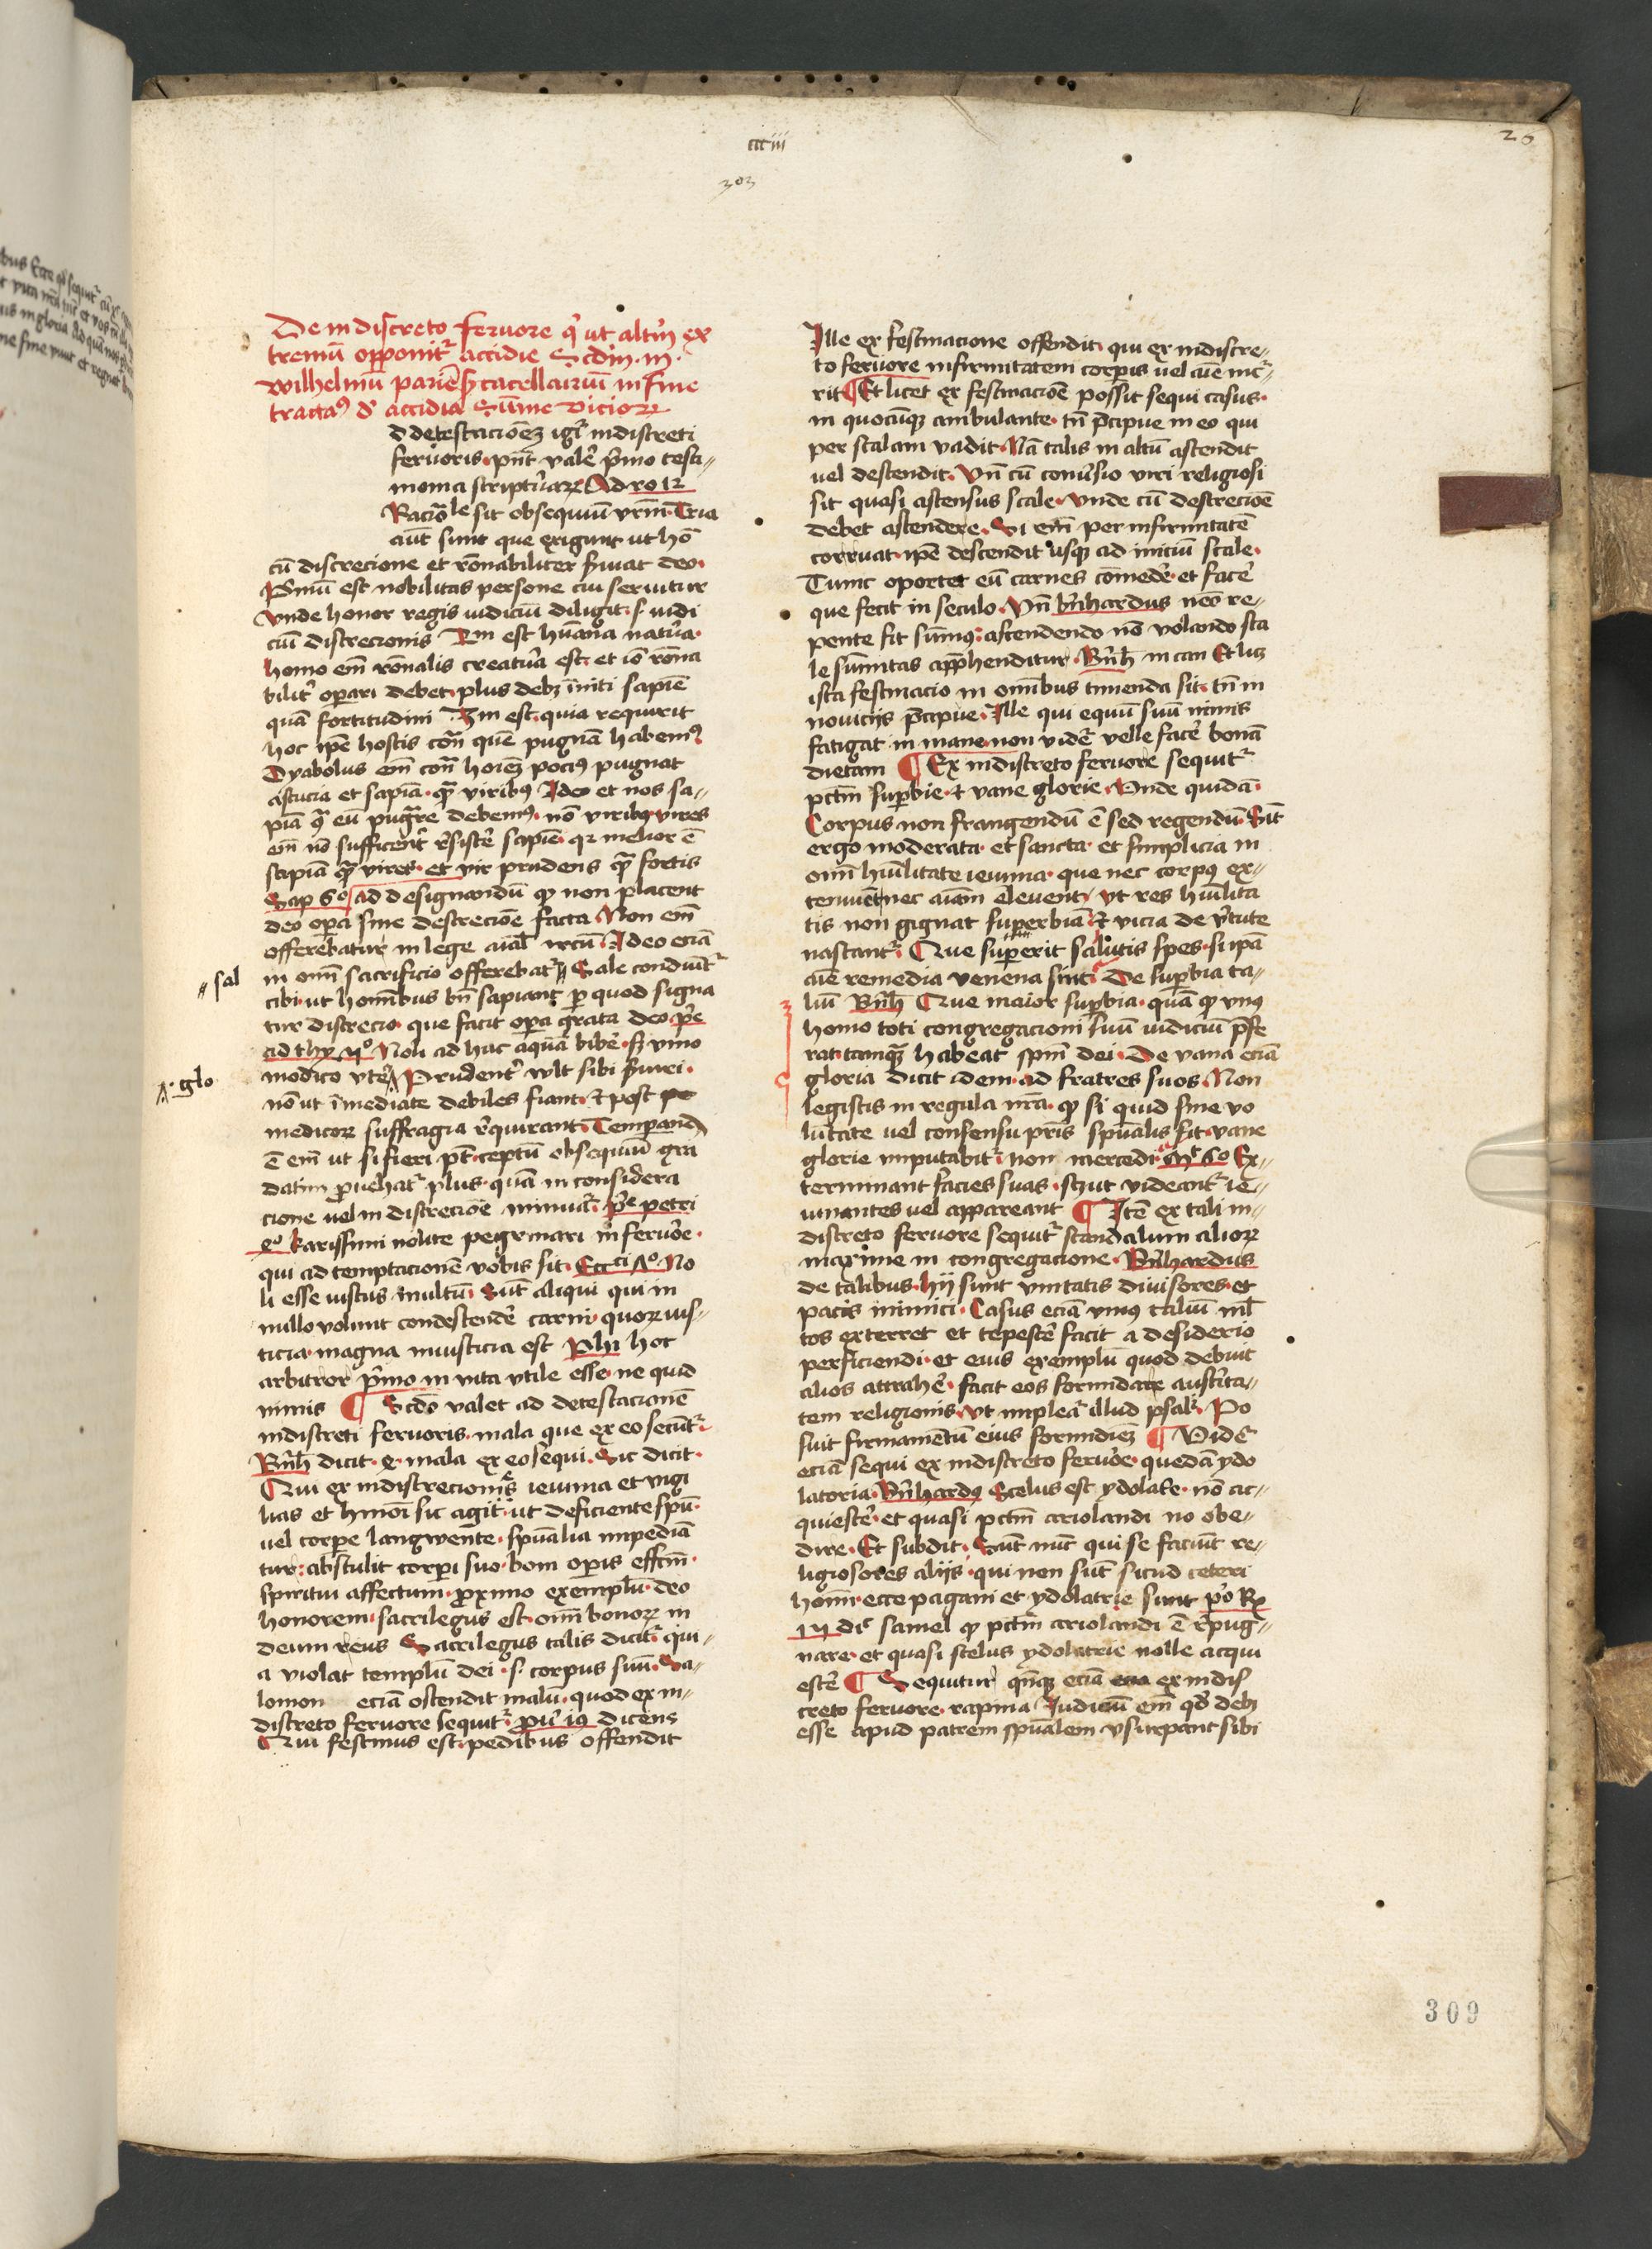 ccciii
303
20
De indiscreto feruore qͥ ut altm̄ ex
tremū opponitͬ accidie Scdm̄ m
wilhelmū pariēs̄ cacellariū in fine
tractaꝰ dͤ accidia Sūme vicioꝝ
d detestacioēꝫ igͥ indiscreti
feruoris pn̄t valeͬ pͥmo testi
monia scripturaꝝ Ad ro 12
Racioͣle sit obsequiū vrm̄ Tria
aut̄ sunt que exigunt ut ho
cū discrecione et ron̄abiliter ẜuiat deo
Pͥmū est nobilitas persone cui seruitur
vnde honor regis iudiciū diligit s iudi
ciū discrecionis 2m est hūana natura
homo em̄ ron̄alis creatura est et io ron̄a
bilitͬ operari debet plus debꝫ īniti sapie
quā fortitudini 3m est quia requirit
hoc ipē hostis contͣ quē pugnā habemꝰ
Dyabolus em̄ contͣ hoīeꝫ pociꝰ pugnat
astucia et sapia qͣ viribꝰ Ideo et nos sa
pia qͣ eū pugnͬe debemꝰ no viribꝰ vires
em̄ no sufficerent resisteͬ sapie qꝛ melior ē
sapia qͣ vires et vir prudens qͣ fortis
Sap 6o ad designandū qꝫ non placent
deo opera sine descrecioē facta Non em̄
offerebatur in lege aīal vrcū Ideo eciā
in omī sacrificio offerebatͬ Sale condiūtͬ
sal
cibi ut homībus bn̄ sapiant per quod signa
tur discrecio que facit opera grata deo pͥe
ad thy 5o Noli ad huc aquā bibeͬ sꝫ vino
modico vteͬ Prudentͬ vult sibi ẜuiri
A glo
no ut īmediate debiles fiant et post
medicoꝝ suffragia requirant Temperand
ē em̄ ut si fieri pt̄ ceptū obsequiū gra
datim prouehatͬ plus quā in considera
cione uel in discrecioē minuitͬ pͥe petri
4o karissimi nolite pegrinari in feruore
qui ad temptacionē vobis fit Ecci 7o No
li esse iustus multū Sūt aliqui qui in
nullo volunt condescendeͬ carni quoꝝ ius
ticia magna iniusticia est Phi hoc
arbitror pͥmo in vita vtile esse ne quid
nimis ¶ Scd̄o valet ad detestacionē
indiscreti feruoris mala que ex eo secūtͬ
Bn̄h dicit 4 mala ex eo sequi Sic dicit
Qui ex indiscrecionis ieiunia et vigi
lias et hmōi sic agit ut deficiente spū
uel corpe langwente spūalia impediā
tur abstulit corpi suo boni operis effcm̄
spiritui affectum proximo exemplū deo
honorem sacrilegus est omī bonoꝝ in
deum reus Sacrilegus talis dicitͬ qui
a violat templū dei s corpus suū Sa
lomon eciā ostendit malū quod ex in
discreto feruore sequitͬ pu 19 dicens
Qui festinus est pedibus offendit
Ille ex festinacione offendit qui ex indiscre
to feruore infirmitatem corpis uel aīe incͬ
rit ¶ Et licet ex festinacioē possit sequi casus
in quocūqꝫ ambulante tn̄ pͣcipue in eo qui
per scalam vadit Nā talis in altū ascendit
uel descendit Vn̄ cū conuͬsio viri religiosi
sit quasi ascensus scale vnde cū descrecioē
debet ascendere Si em̄ per infirmitatē
corruat ipē descendit usqꝫ ad initiū scale
Tunc oportet eū carnes comedeͬ et faceͬ
que fecit in seculo Vn̄ bn̄hardus nēo re
pente fit sūmꝰ ascendendo no volando sca
le sūmitas apprehenditur Bn̄h in can Et licꝫ
ista festinacio in omībus timenda sit tn̄ in
nouicijs pͣcipue Ille qui equū suū nimis
fatigat in mane non videͬ velle faceͬ bonā
dietam ¶ Ex indiscreto feruore sequitͬ
pctm̄ suꝑbie et vane glorie Vnde quidā
Corpus non frangendū ē sed regendū Sit
ergo moderata et sancta et simplicia in
omī hūilitate ieiunia que nec corpꝰ ex
tenuēt nec aīam eleuent vt res hūilita
tis non gignat superbiā et vicia de vͬtute
nascantͬ Que superit salutis spes si ipa
aīe remedia venena sint De suꝑbia ta
liū Bn̄h Que maior suꝑbia quā qꝫ vnꝰ
homo toti congregacioni suū iudiciū pͣfe
rat tamqͣ habeat spm̄ dei De vana eciā
gloria dicit idem ad fratres suos Non
legistis in regula nrā qꝫ si quid sine vo
lūtate uel consensu prīs spūalis fit vane
glorie imputabitͬ non mercedi Mt 6o Ex
terminant facies suas sc̄ ut videantͬ ie
iunantes uel appareant ¶ Itē ex tali in
discreto feruore sequitͬ scandalum alioꝝ
maxime in congregacione Bn̄hardus
de talibus hij sunt vnitatis diuisores et
pacis inimici Casus eciā vniꝰ taliū ml̄
tos exterret et tepesceͬ facit a desiderio
perficiendi et eius exemplū quod debuit
alios attraheͬ facit eos formidare austerita
tem religionis vt impleatͬ illud psal Po
suit firmamentū eius formidieꝫ ¶ Videͬ
eciā sequi ex indiscreto feruore quedā ydo
latoria Bn̄hardꝰ Scelus est ydolatre no ac
quiesceͬ et quasi pctm̄ ariolandi no obe
dire Et subdit Sūt nūt qui se faciūt re
ligiosores alijs qui non sūt sicud ceteri
homī ecce pagani et ydolatrie sunt pͦ Rꝫ
15 diͨ samel qꝫ pctm̄ ariolandi ē repug
nare et quasi scelus ydolatrie nolle acqui
esceͬ ¶ Sequitur qn̄qꝫ eciā ex indis
creto feruore rapina Iudiciū em̄ qd̄ debꝫ
esse apud patrem spūalem vsurpant sibi
309